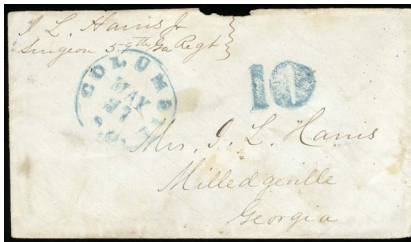 I L. Harris Jr
Surgeon 59th Ga Regt
COLUMBIA
MAY
10
Mrs. I. L. Harris
Milledgeville
Georgia